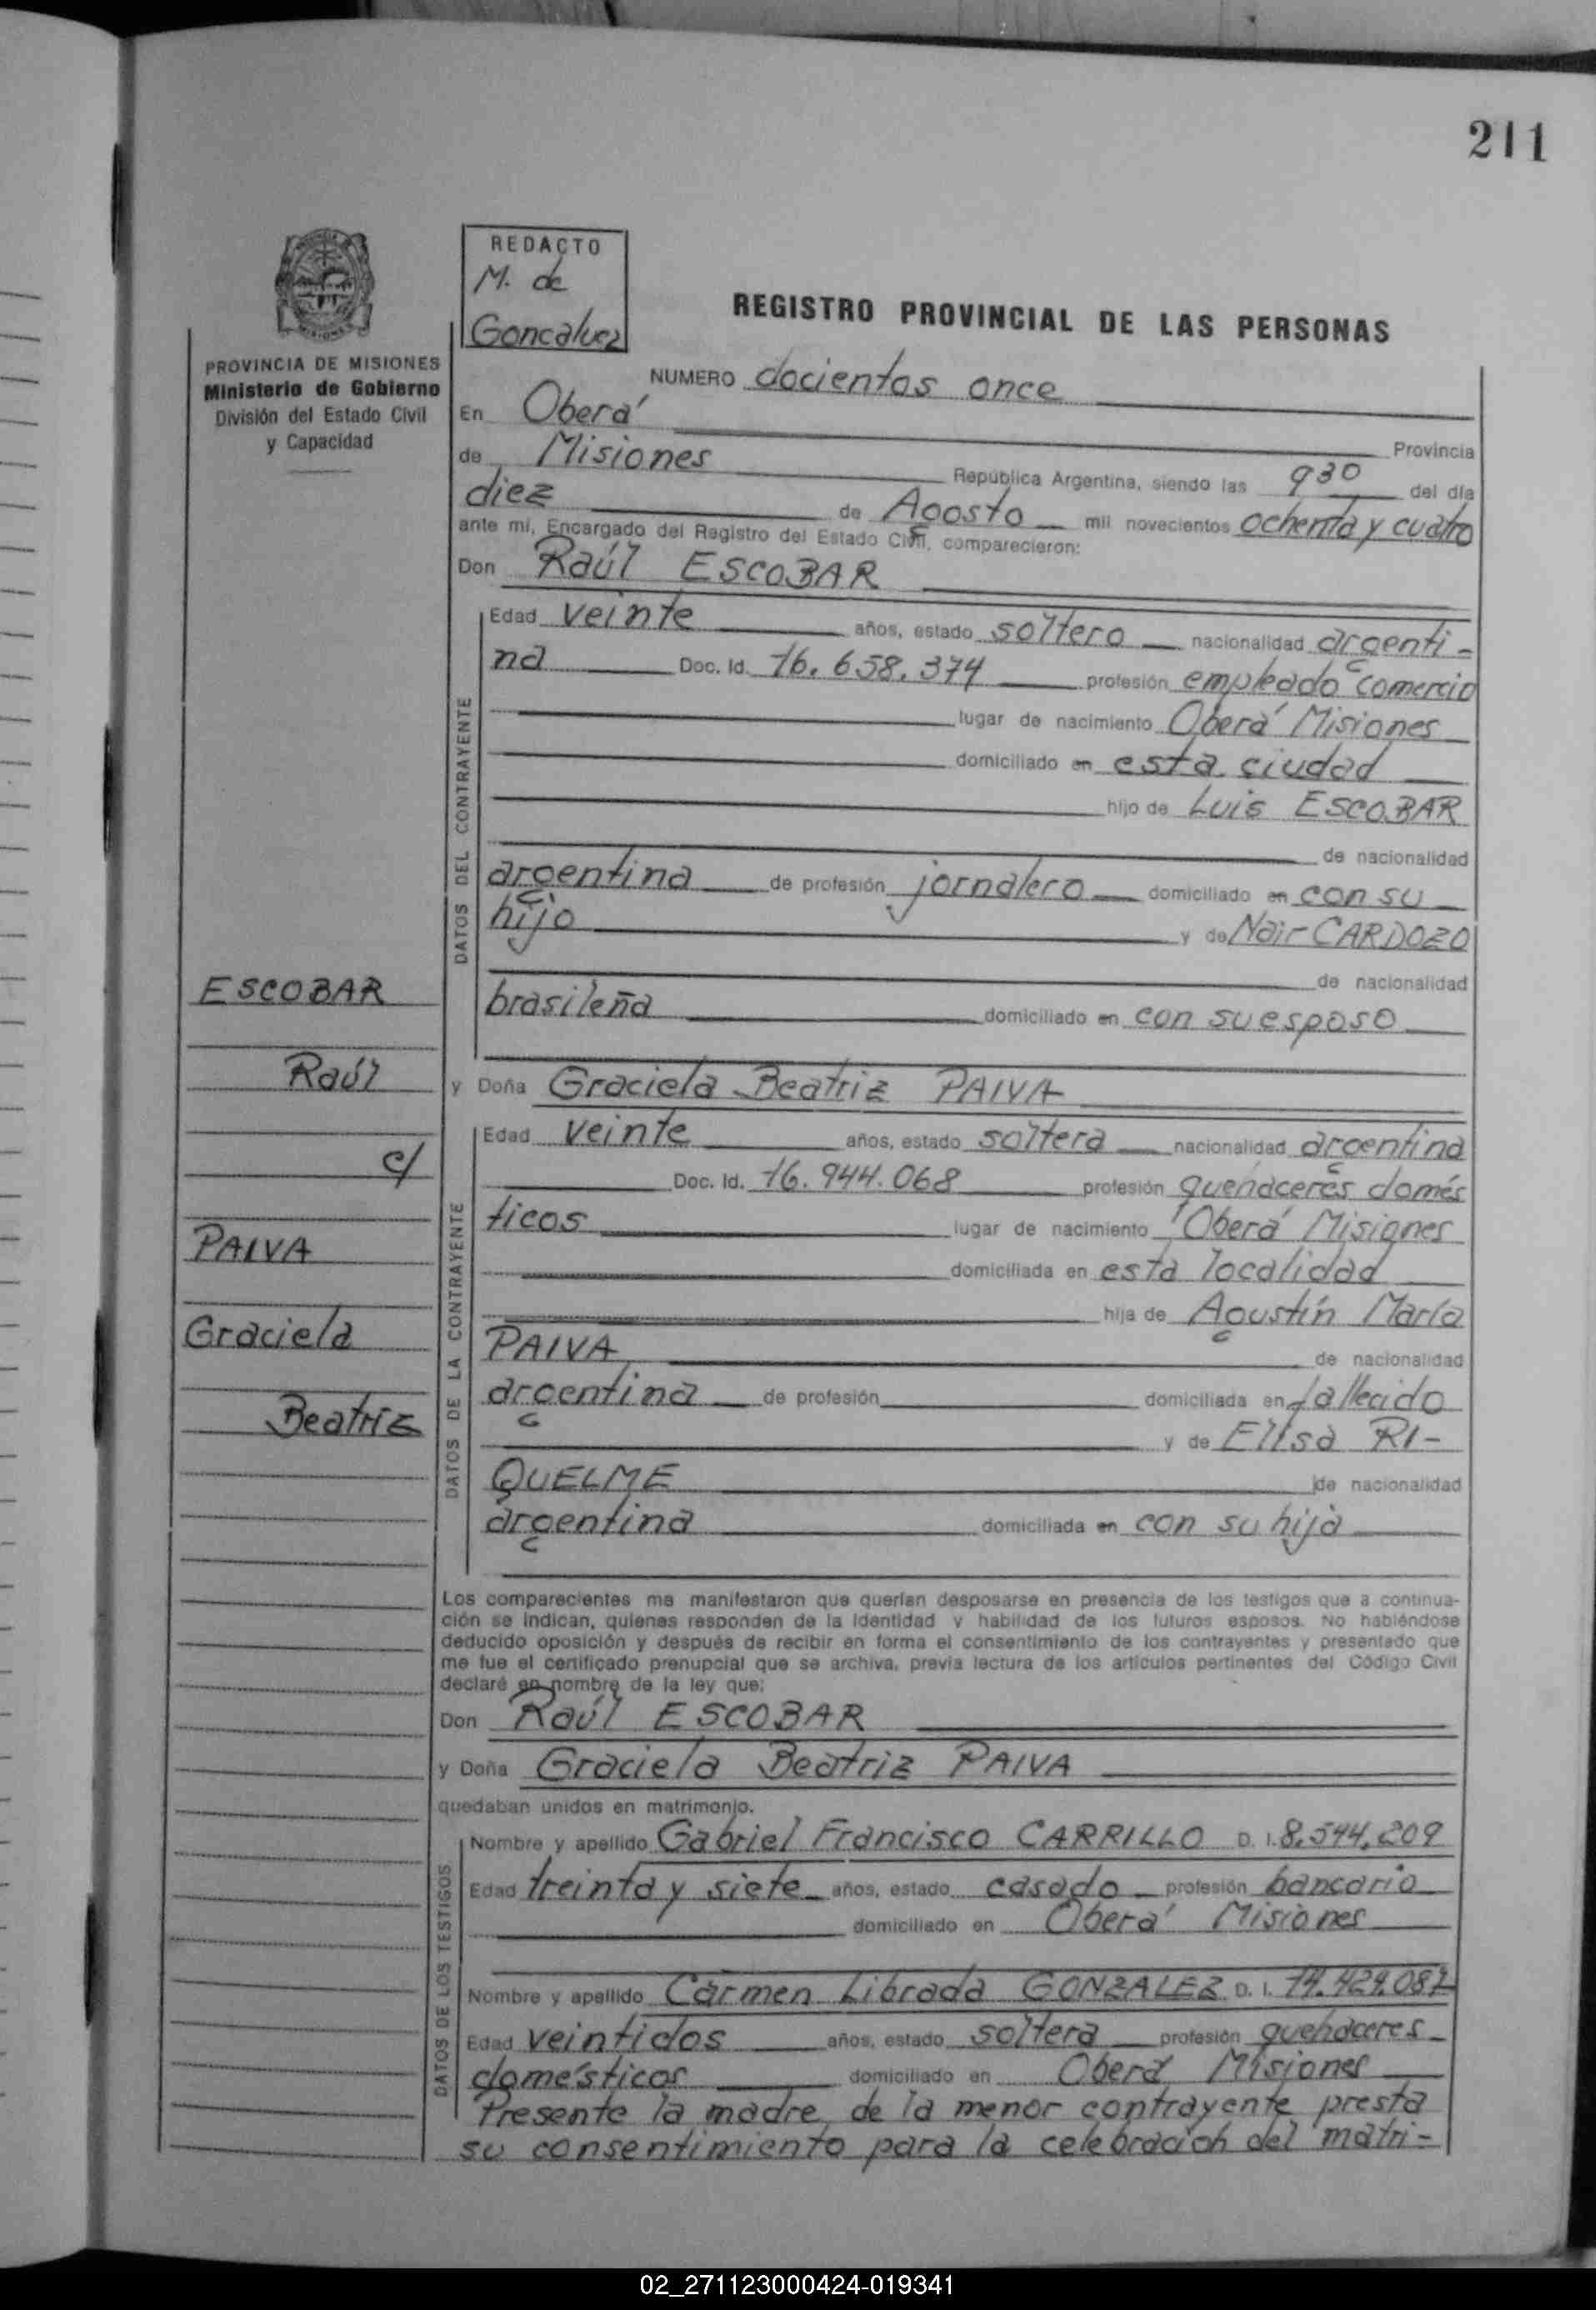 211
REDACTO
M. de
Goncalvez
REGISTRO PROVINCIAL DE LAS PERSONAS
PROVINCIA DE MISIONES
Ministerio de Gobierno
División del Estado Civil
y Capacidad
ESCOBAR
Raúl
c/
PAIVA
Graciela
Beatriz
NUMERO docientos once
En Oberá
Provincia
de Misiones República Argentina, siendo las 930 del día
diez de Agosto mil novecientos ochenta y cuatro
ante mí, Encargado del Registro del Estado Civil, comparecieron:
Don Raúl ESCOBAR
DATOS DEL CONTRAYENTE
Edad veinte años, estado soltero nacionalidad argenti-
na Doc. Id. 16.658.374 profesión empleado comercio
lugar de nacimiento Oberá Misiones
domiciliado en esta ciudad
hijo de Luis ESCOBAR
de nacionalidad
argentina de profesión jornalero domiciliado en con su
hijo y de Nair CARDOZO
de nacionalidad
brasileña domiciliado en con su esposo
y Doña Graciela Beatriz PAIVA
DATOS DE LA CONTRAYENTE
Edad veinte años, estado soltera nacionalidad argentina
Doc. Id. 16.944.068 profesión quehaceres domés
ticos lugar de nacimiento Oberá Misiones
domiciliada en esta localidad
hija de Agustín María
PAIVA de nacionalidad
argentina de profesión domiciliada en fallecido
y de Elisa RI-
QUELME de nacionalidad
argentina domiciliada en con su hija
Los comparecientes me manifestaron que querían desposarse en presencia de los testigos que a continua-
ción se indican, quienes responden de la identidad y habilidad de los futuros esposos. No habiéndose
deducido oposición y después de recibir en forma el consentimiento de los contrayentes y presentado que
me fue el certificado prenupcial que se archiva, previa lectura de los artículos pertinentes del Código Civil
declaré en nombre de la ley que:
Don Raúl ESCOBAR
y Doña Graciela Beatriz PAIVA
quedaban unidos en matrimonio.
DATOS DE LOS TESTIGOS
Nombre y apellido Gabriel Francisco CARRILLO D. I. 8.544.209
Edad treinta y siete años, estado casado profesión bancario
domiciliado en Oberá Misiones
Nombre y apellido Carmen Librada GONZALEZ D. I. 14.424.087
Edad veintidos años, estado soltera profesión quehaceres
domésticos domiciliado en Oberá Misiones
Presente la madre de la menor contrayente presta
su consentimiento para la celebración del matri-
02_271123000424-019341